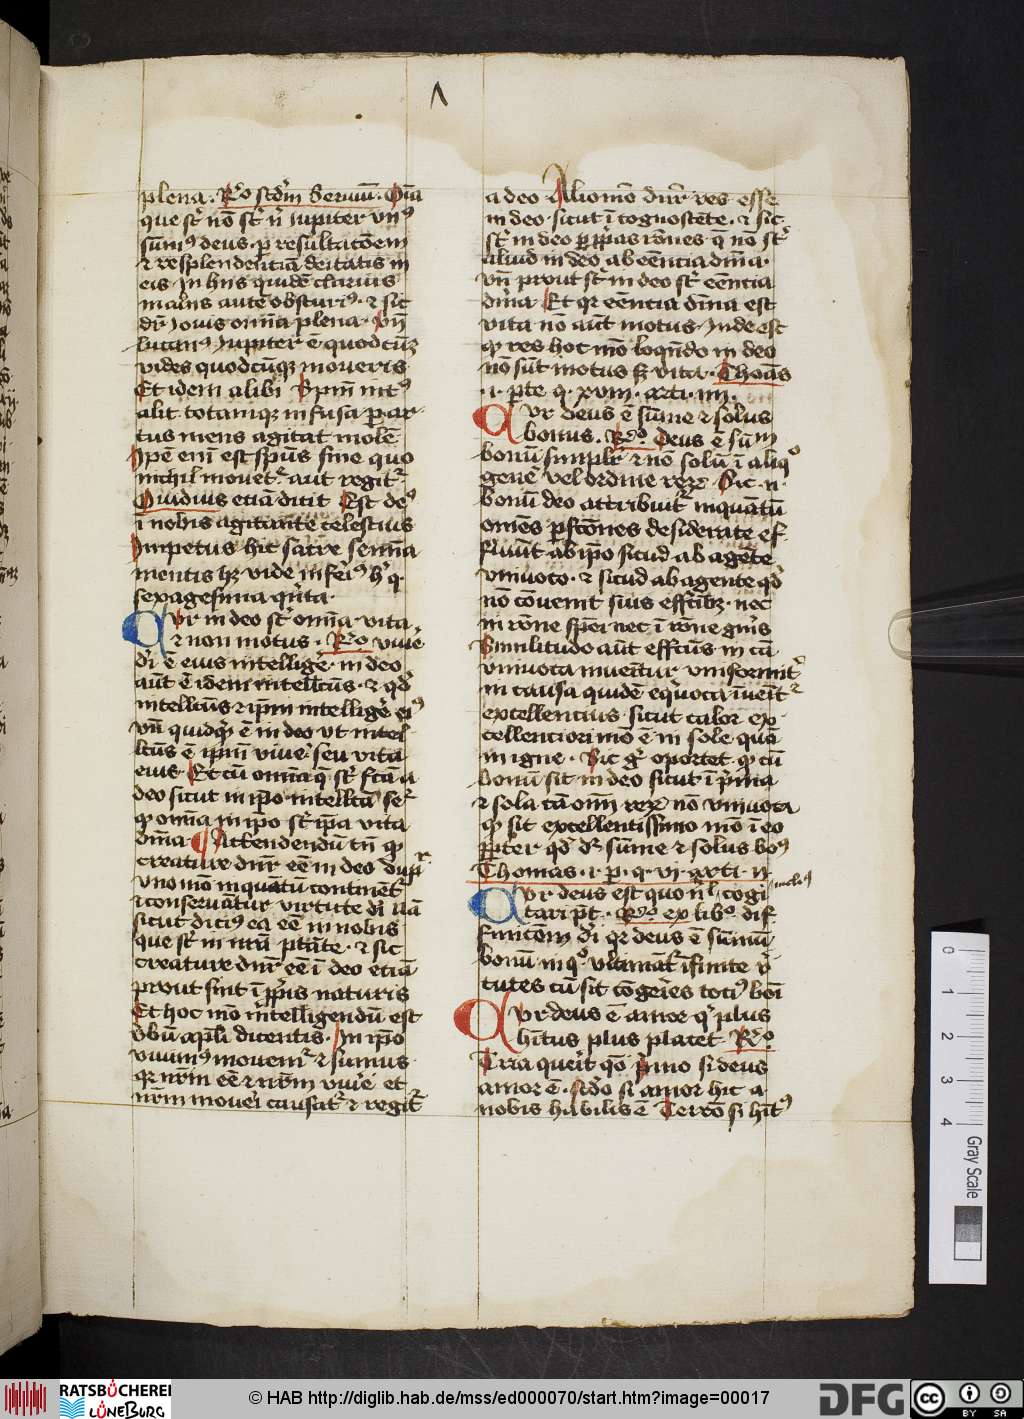 plena. Rᵒ scđm Seruiū. Oīa
que sūt nō sūt n̄ Iupiter vnꝰ
sūmꝰ deus. ꝑ resultacōem
⁊ resplendentiā deitatis in
eis In hijs quidē clarius
in alijs autē obscuriꝰ. ⁊ sic
dr̄ Iouis om̄ia plena. vn̄
lucanꝰ Iupiter ē quodcūqꝫ
vides quodcūqꝫ moueris
Et idem alibi Spūs intꝰ
alit. totamqꝫ infusa ꝑ ar
tus mens agitat molē
Ipē em̄ est spūs sine quo
nichil mouetᷣ aut regitᷣ
Ouidius etiā dicit Est deꝰ
ī nobis agitante celestius
Impetus hic sacre semīa
mentis hꝫ vide inferiꝰ hͦ q̄.
sexagesima qn̄ta.
Cvr in deo sūt om̄ia vita
⁊ non motus. Rᵒ viuē
dī ē eius intelligē. in deo
aūt ē idem intellcūs. ⁊ qđ
intellcūs ⁊ ip̄m intelligē eiꝰ
vn̄ quidqͥd ē in deo vt intel
lcūs ē ip̄m viuē seu vita
eius. Et cū om̄ia q̄ sūt fcā a
deo sicut in ip̄o intellcā sūt
ꝙ om̄ia in ip̄o sūt ip̄a vita
dīna. Attendendū tn̄ ꝙ
creature dnr̄ eē in deo duplr̄
vno mō inquātū continētᷣ
⁊ conseruātur virtute dī ītā
sicut dicimꝰ ea eē in nobis
que sūt in nrā ptāte. ⁊ sic
creature dnr̄ eē ī deo etiā
prout sint ī ꝓpͥis naturis
Et hoc mō intelligendū est
vͤbū apli dicentis. In ip̄o
viuimꝰ mouemͬ ⁊ sumus.
qꝛ nr̄m eē ⁊ nr̄m viuē et
nr̄m mouēi causatᷣ ⁊ regitᷣ
a deo Alio mō dnr̄ res esse
in deo. sicut ī cognoscēte. ⁊ sic
sūt in deo ꝑ ꝓpͥas rōnes q̄ nō sūt
aliud in deo ab eēntia dīna.
vn̄ prout sūt in deo sūt eēntia
dīna Et qꝛ eēntia dīna est
vita nō aūt motus. Inde est
ꝙ res hoc mō loqn̄do in deo
nō sūt motus sꝫ vita. Thoās
.i. ꝑte q. xviii. arti. iiii.
Cvr deus ē sūme ⁊ solus
bonus. Rᵒ. Deus ē sūm
bonū simplr̄ ⁊ nō solū ī aliqͦ
genē vel ordine reꝝ. Sic. n.
bonū deo attribuitᷣ inquātū
om̄es ꝑfcōnes desiderate ef
fluūt ab ip̄o sicud ab agēte
vniuoco. ⁊ sicud ab agente qđ
nō cōuenit suis effcībꝫ. nec
in rōne sp̄ei nec ī rōne gn̄is
Similitudo aūt effcūs in cā
vniuoca inuenitur vniformitͬ
in causa quidē eqͥuoca īueītᷣ
excellencius. sicut calor ex
cellenciori mō ē in sole quā
in igne. Sic gͦ oportet ꝙ cū
bonū sit in deo sicut ī pͥma
⁊ sola cā om̄i reꝝ nō vniuoca
ꝙ sit excellentissimo mō ī eo
ꝓpter qđ dr̄ sūme ⁊ solus boꝰ
Thomas. i. p. q. vi. arti. ii
Cvr deus est quo nl̄ cogi meliꝰ
tari pt̄. Rᵒ. ex libͦ. dif
finicōm dī qꝛ deus ē sūmū
bonū in qͦ vltimātᷣ īfinite vͥ
tutes cū sit cōgeīes tociꝰ boī
Cvr deus ē amor qͥ plus
hītus plus placet. Rᵒ
Tria querīt qō pͥmo si deus
amor ē. scđo si amor hic a
nobis habilis ē Tercō si hītꝰ